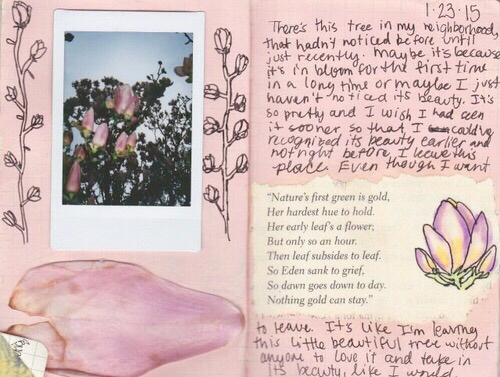 1·23·15
There's this tree in my neighborhood,
that hadn't noticed before until
just recently. Maybe it's because
it's in bloom for the first time
in a long time or maybe I just
haven't noticed its beauty. It's
so pretty and I wish I had seen
it sooner so that I could've
recognized its beauty earlier and
not right before, I leave this
place. Even though I want
"Nature's first green is gold,
Her hardest hue to hold.
Her early leaf's a flower;
But only so an hour.
Then leaf subsides to leaf.
So Eden sank to grief,
So dawn goes down to day.
Nothing gold can stay."
to leave. It's like I'm leaving
this little beautiful tree without
anyone to love it and take in
its beauty, like I would.